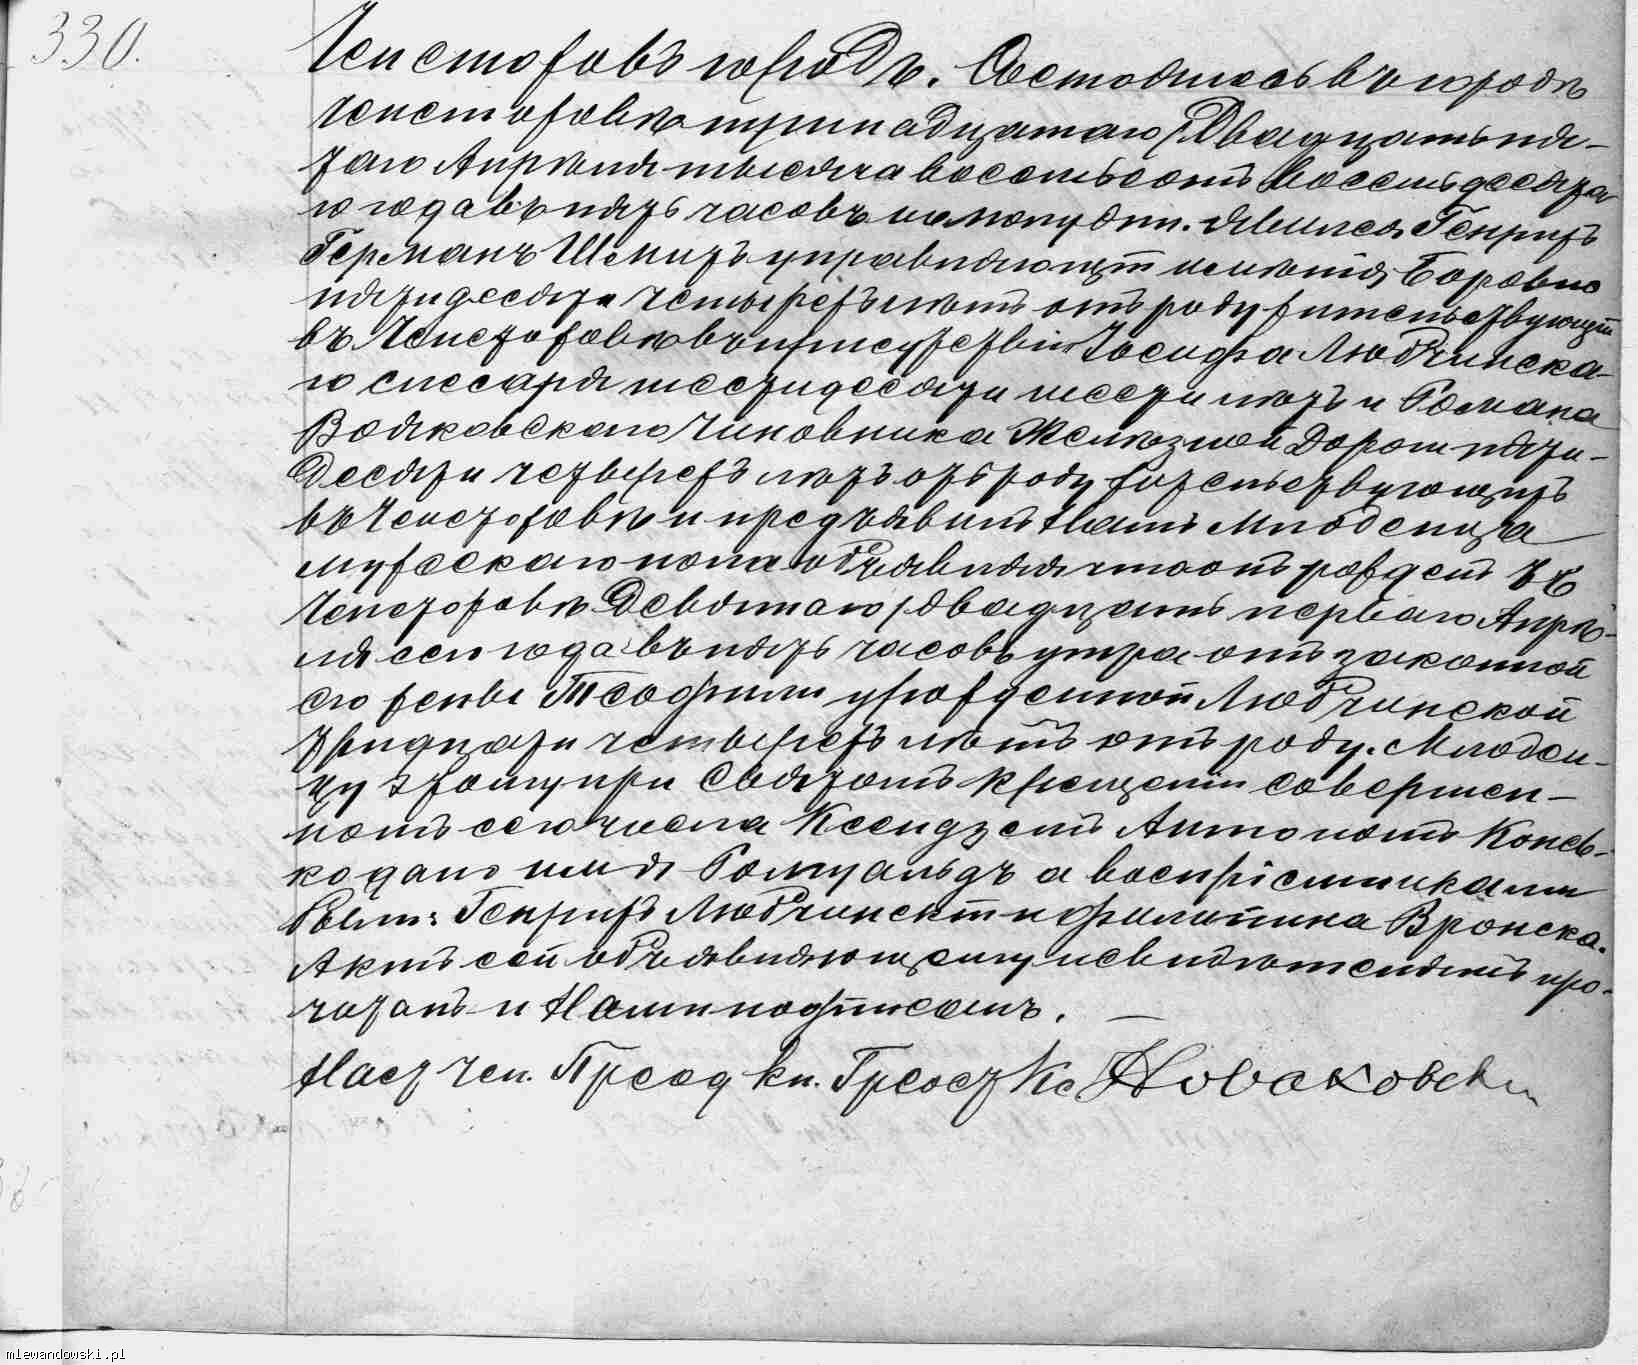 330.
Ченстоховъ городъ. Состоялось въ городѣ
Ченстоховѣ тринадцатаго / Двадцать пя-
таго Апрѣля тысяча восемьсотъ восемьдесята
го года въ пять часовъ по полудни. Явился Генрихъ
Германъ управляющій имѣнія Боровно
пятидесяти четырехъ лѣтъ отъ роду жительствующій
въ Ченстоховѣ въ присутствіи Іосифа Любчинска-
го слесаря шестидесяти шести лѣтъ и Романа
чиновника Желѣзной Дороги пяти-
десяти четырехъ лѣтъ отъ роду жительствующихъ
въ Ченстоховѣ и предъявилъ Намъ младенца
мужескаго пола объявляя что онъ рожденъ въ
Ченстоховѣ Девятаго / двадцать перваго Апрѣ-
ля сего года въ пять часовъ утра отъ законной
его жены Теофили урожденной Любчинской
тридцати четырехъ лѣтъ отъ роду. Младен-
цу этому при Святомъ Крещеніи совершен-
номъ сего числа Ксендзомъ Антономъ
дано имя Ромуальдъ а воспріемниками
были: Генрихъ Любчинскій и Филипина Вронска.
Актъ сей объявляющему и свидѣтелямъ про-
читанъ и Нами подписанъ. —
Наст Чен. Прсод Кн. Кс Новаковски
mlewandowski.pl